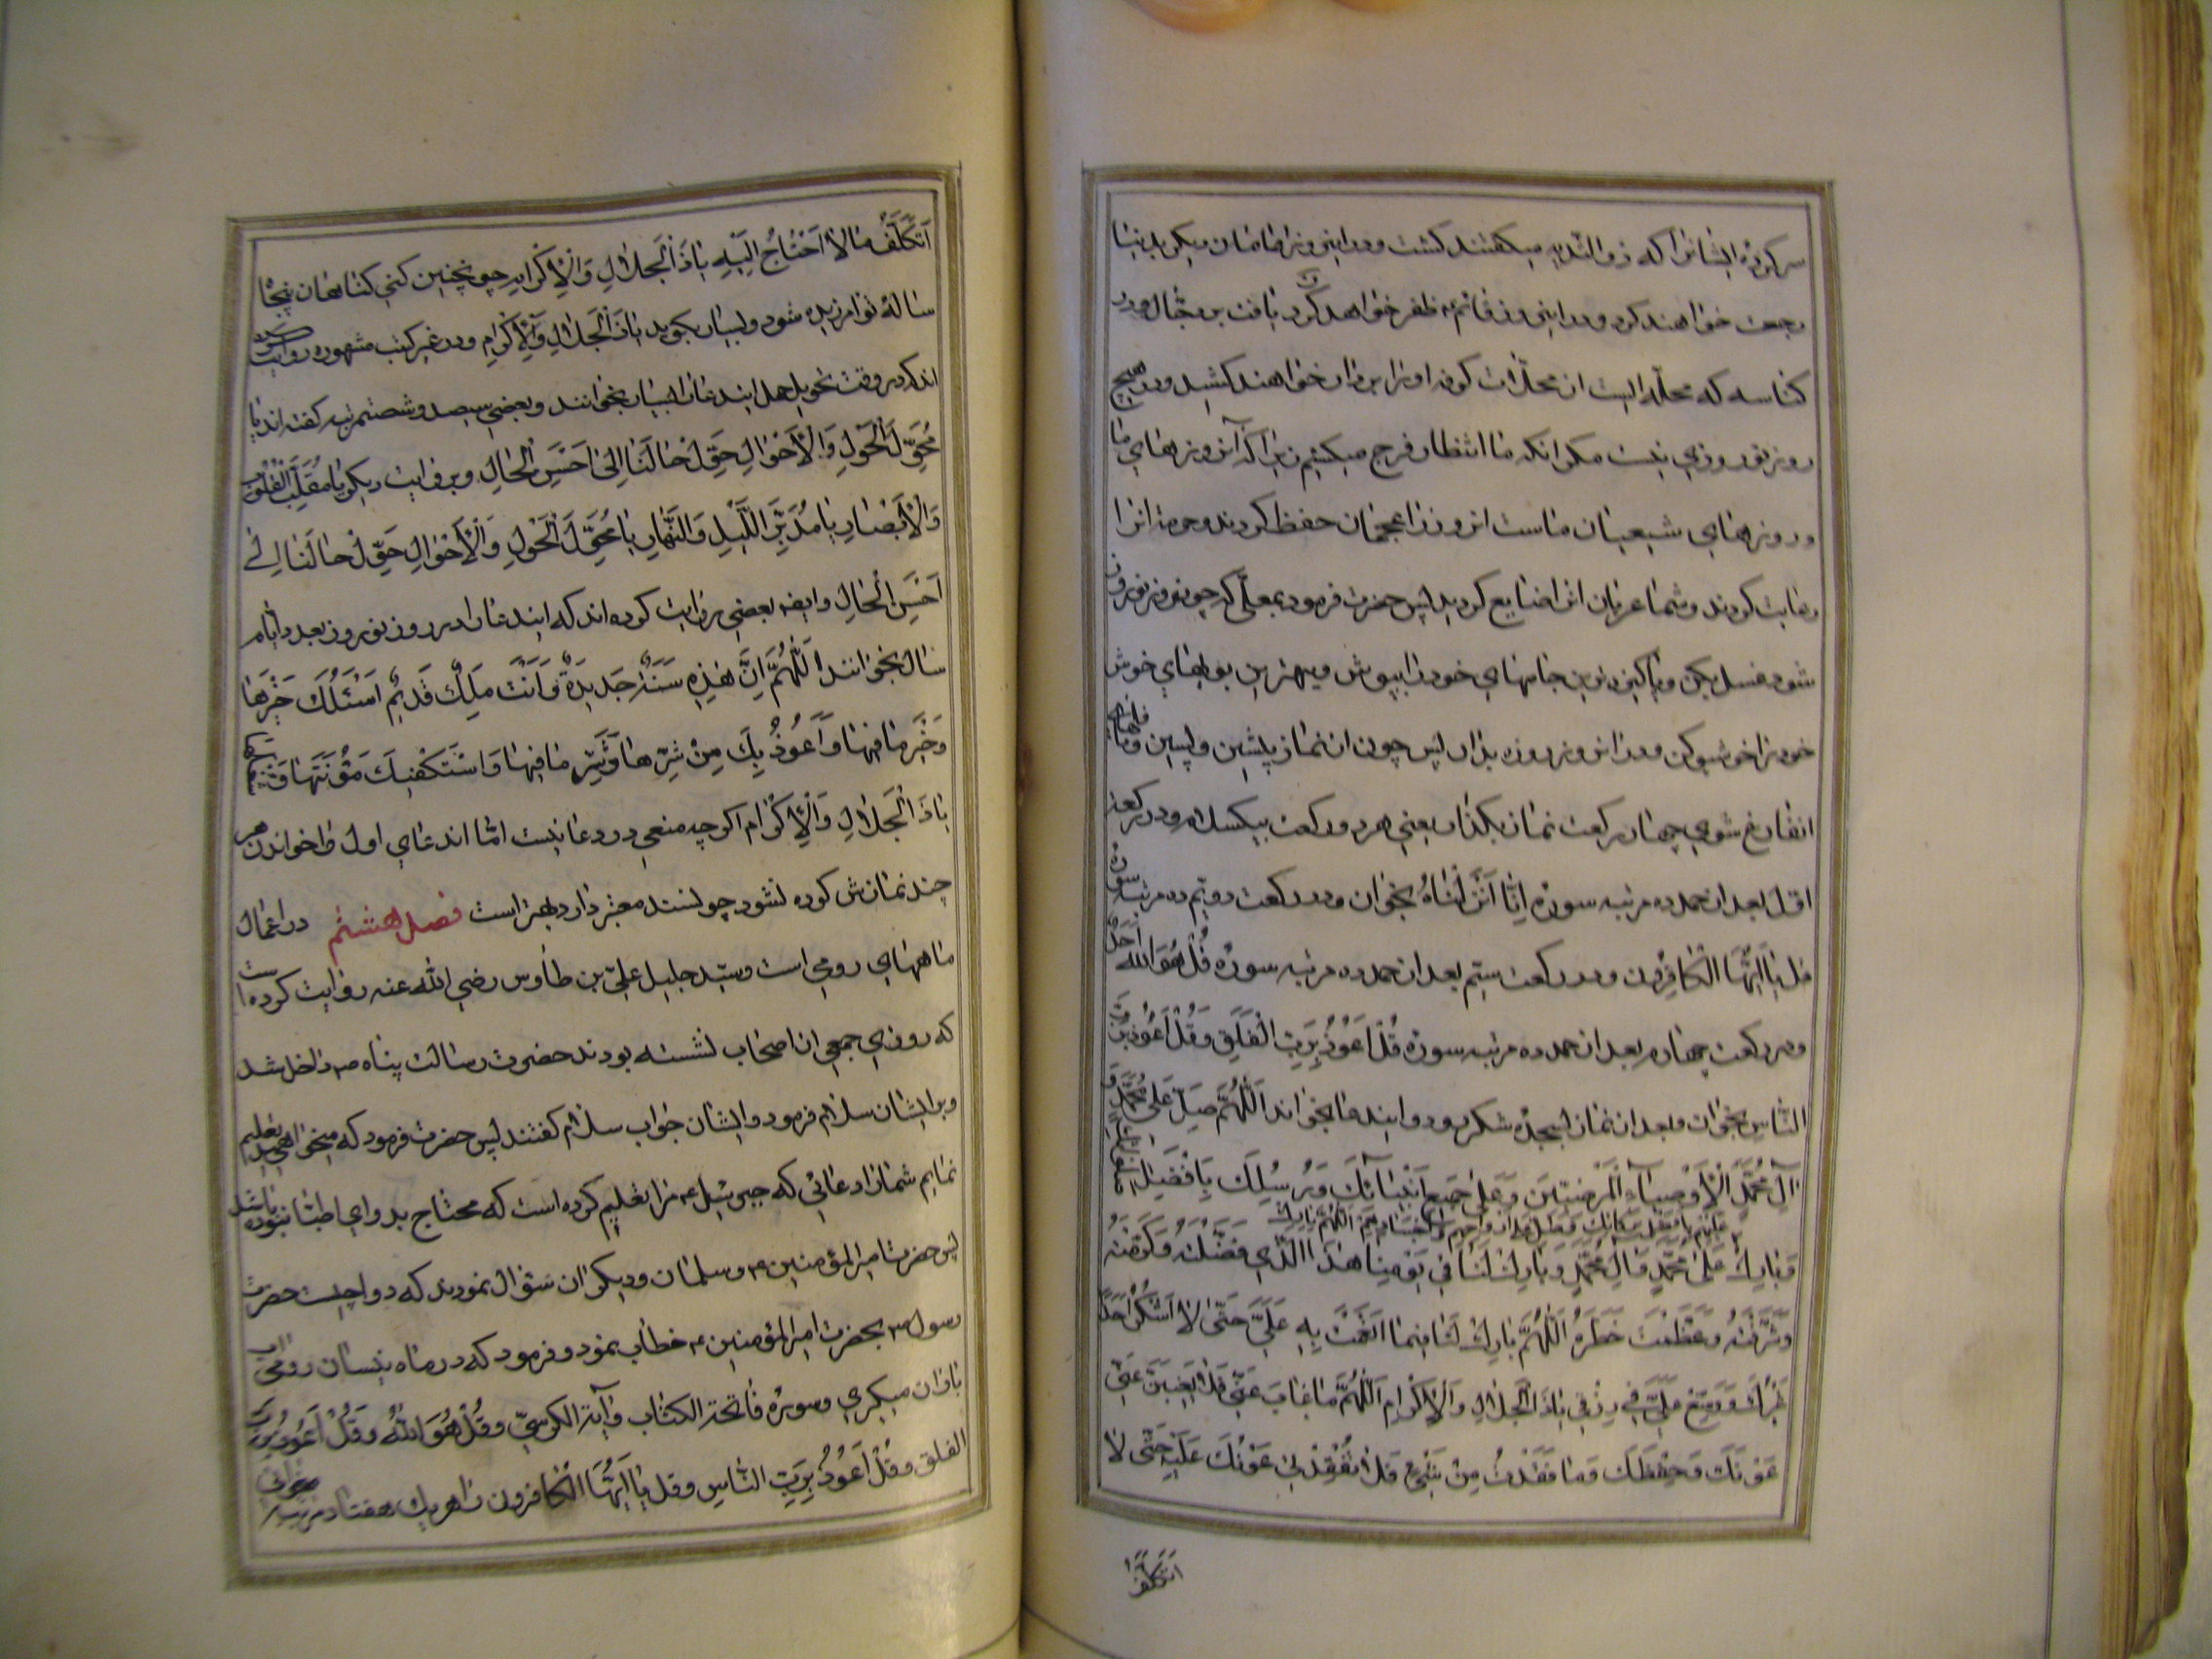 سرکرده ایشانرا که ذو الثدیه میگفتند کشت ودر این روز امامان دیگر بدنیا
رجعت خواهند کرد ودر این روز قائم ع ظفر خواهد کرد یافت بر دجّال ودر
کناسه که محلّه ایست از محلّات کوفه او را بر دار خواهند کشید ودر هیچ
روز نوروزی نیست مگر انکه ما انتظار فرج میکشیم زیرا که آنروز از روزهای ما
وروزهای شیعیان ماست انروز را عجمان حفظ کردند وحرمت انرا
رعایت کردند وشما عربان انرا ضایع کردید پس حضرت فرمود بمعلّی که چون روز نوروز
شود غسل بکن وپاکیزه ترین جامهای خود را بپوش وبهترین بویهای خوش
خود را خوشبو کن ودر انروز روزه بدار پس چون از نماز پیشین وپسین ونافلهای
ان فارغ شوی چهار رکعت نماز بگذار یعنی هر دو رکعت بیکسلام ودر رکعت
اوّل بعد از حمد ده مرتبه سوره اِنّا اَنْزَلْناهُ بخوان ودر رکعت دویّم ده مرتبه سوره
قل یا اَیُّهَا الْکافِرون ودر رکعت سیّم بعد از حمد ده مرتبه سورۀ قُلْ هُوَ اللّٰه اَحَدٌ
ودر رکعت چهارم بعد از حمد ده مرتبه سورۀ قُلْ اَعُوْذُ بِرَبِّ الْفَلَقِ وَقُلْ اَعُوْذُ بِرَبِّ
النّاسِ بخوان وبعد از نماز بسجدۀ شکر برود واینْدعا بخواند اَللّٰهُمَّ صَلِّ عَلیٰ مُحَمَّدٍ وَ
آلِ مُحَمَّدٍ الْاَوْصِیاءِ الْمَرْضِیّینَ وَعَلیٰ جَمیعِ اَنْبِیائِکَ وَرُسُلِکَ بِاَفْضَلِ صَلَواتِکَ
وَبارِکْ عَلَیْهِم بِاَفْضَلِ بَرَکاتِکَ وَصَلِّ عَلیٰ اَرْواحِهِم وَاَجْسادِهِمْ اَللّٰهُمَّ بارِکْ
عَلیٰ مُحَمَّدٍ وَآلِ مُحَمَّدٍ وَبارِکْ لَنا فی یَوْمِنا هٰذَا الَّذی فَضَّلْتَهُ وَکَرَّمْتَهُ
وَشَرَّفْتَهُ وَعَظَّمْتَ خَطَرَهُ اَللّٰهُمَّ بارِکْ لَنا فیما اَنْعَمْتَ بِهِ عَلَیَّ حَتّیٰ لا اَشْکُرَ اَحَداً
غَیْرَکَ وَوَسِّعْ عَلَیَّ فی رِزْقی یاذَا الْجَلالِ وَالْاِکْرامِ اَللّٰهُمَّ ما غابَ عَنّی فَلا یَغیبَنَّ عَنّی
عَوْنُکَ وَحِفْظُکَ وَما فَقَدْتُ مِنْ شَیْءٍ فَلا تُفْقِدْنی عَوْنَکَ عَلَیْهِ حَتّیٰ لا
اَتَکَلَّفُ
اَتَکَلَّفُ ما لا اَحْتاجُ اِلَیْهِ یاذَا الْجَلالِ وَالْاِکْرامِ چو نچنین کنی کناهان پنجاه
سالۀ تو امرزیده شود وبسیار بکوید یاذَا الْجَلالِ وَالْاِکْرامِ ودر غیر کتب مشهوره روایت کرده
اند که در وقت تحویل همل ایندعا را بسیار بخوانند وبعضی سیصد وشصت مرتبه کفته اند یا
مُحَوِّلَ الْحَوْلِ وَالْاَحْوالِ حَوِّلْ حالَنا اِلیٰ اَحْسَنِ الْحالِ وبروایت دیکر یا مُقَلِّبَ الْقُلُوْبِ
وَالْاَبْصارِ یا مُدَبِّرَ اللَّیْلِ وَالنَّهارِ یا مُحَوِّلَ الْحَوْلِ وَالْاَحْوالِ حَوِّلْ حالَنا اِلیٰ
اَحْسَنِ الْحالِ وایضه بعضی روایت کرده اند که ایندعا را در روز نوروز بعدد ایّام
سال بخوانند اَللّٰهُمَّ اِنَّ هٰذِهِ سَنَةٌ جَدیدَةٌ وَاَنْتَ مَلِکٌ قَدیمٌ اَسْئَلُکَ خَیْرَها
وَخَیْرَ ما فیها وَاَعُوْذُ بِکَ مِنْ شَرِّها وَشَرِّ ما فیها وَاسْتَکْفیکَ مَؤُنَتَها وَشُغْلَها
یاذَا الْجَلالِ وَالْاِکْرامِ اکر چه منعی در دعا نیست امّا اندعای اول را خواندن هر
چند نمازش کرده نشود چو نسند معتبر دارد بهتر است فصل هشتم در اعمال
ماههای رومی است وسیّد جلیل علیّ بن طاوس رضی اللّٰه عنه روایت کرده است
که روزی جمعی از اصحاب نشسته بودند حضرت رسالت پناه ص داخل شد
وبر ایشان سلام فرمود وایشان جواب سلام کفتند پس حضرت فرمود که میخواهید تعلیم
نمایم شما را دعائی که جبرئیل ع مرا تعلیم کرده است که محتاج بدوای اطبّا نبوده باشید
پس حضرت امیر المؤمنین ع وسلمان ودیکران سؤال نمودند که دوا چیست حضرت
رسول ص بحضرت امیر المؤمنین ع خطاب نمود وفرمود که در ماه نیسان رومی آب
باران میکیری وسورۀ فاتحة الکتاب وآیة الکرسیّ وقُلْ هُوَ اللّٰهُ وَقُلْ اَعُوْذُ بِرَبِّ
الفلق وقُلْ اَعُوْذُ بِرَبِّ النّاسِ وقل یا اَیُّهَا الْکافِرون را هریک هفتاد مرتبه میخوانی